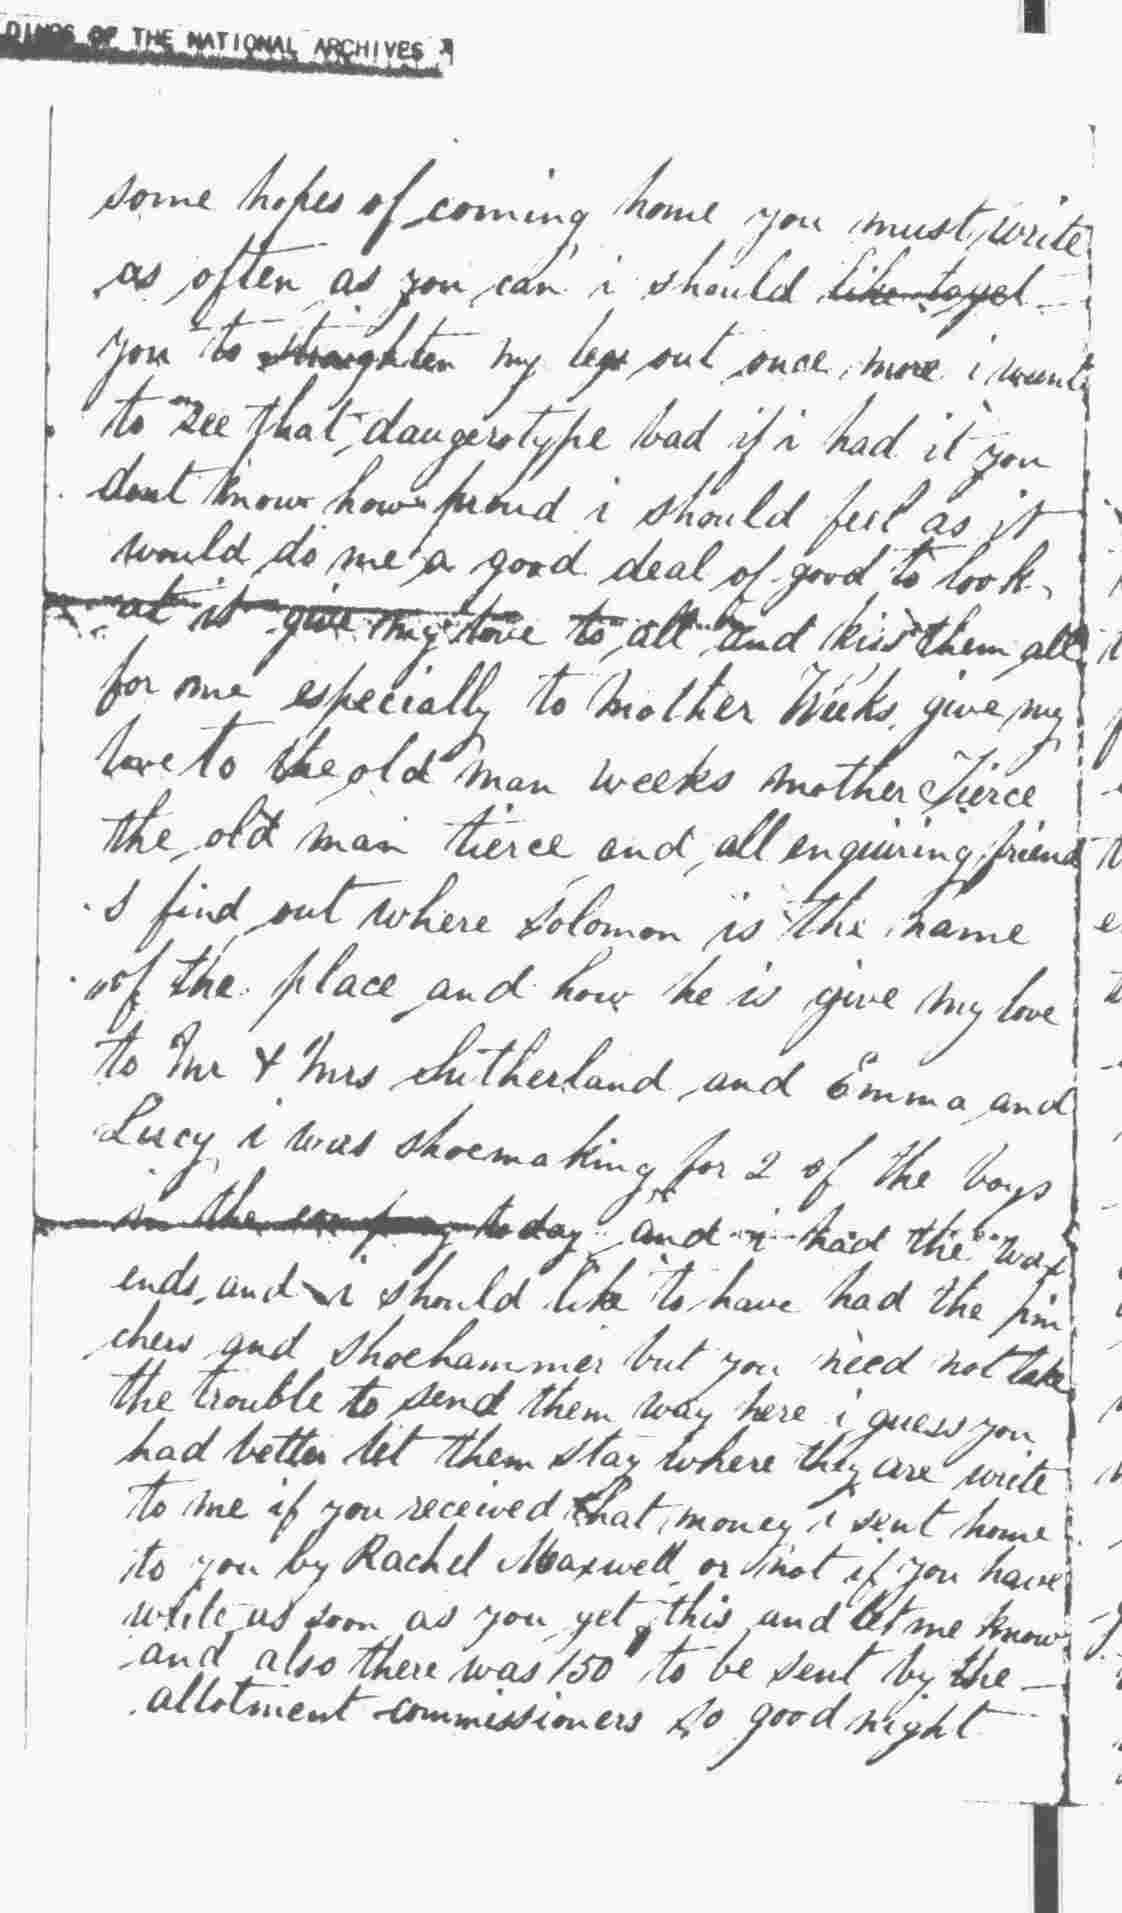 DINGS OF THE NATIONAL ARCHIVES
some hopes of coming home you must write
as often as you can i should like to get
you to straighten my legs out once more i want
to see that daugerotype bad if i had it you
dont know how proud i should feel as it
would do me a good deal of good to look
at it give my love to all and kiss them all
for me especially to Mother Weeks give my
love to the old man weeks mother Tierce
the old man tierce and all enquiring friend
s find out where Solomon is the name
of the place and how he is give my love
to Mr & Mrs Sutherland and Emma and
Lucy i was shoemaking for 2 of the boys
in the company today and i had the wax
ends and i should like to have had the pin
chers and shoehammer but you need not take
the trouble to send them way here i guess you
had better let them stay where they are write
to me if you received that money i sent home
to you by Rachel Maxwell or not if you have
write as soon as you get this and let me know
and also there was 150 to be sent by the
allotment commissioners so good night